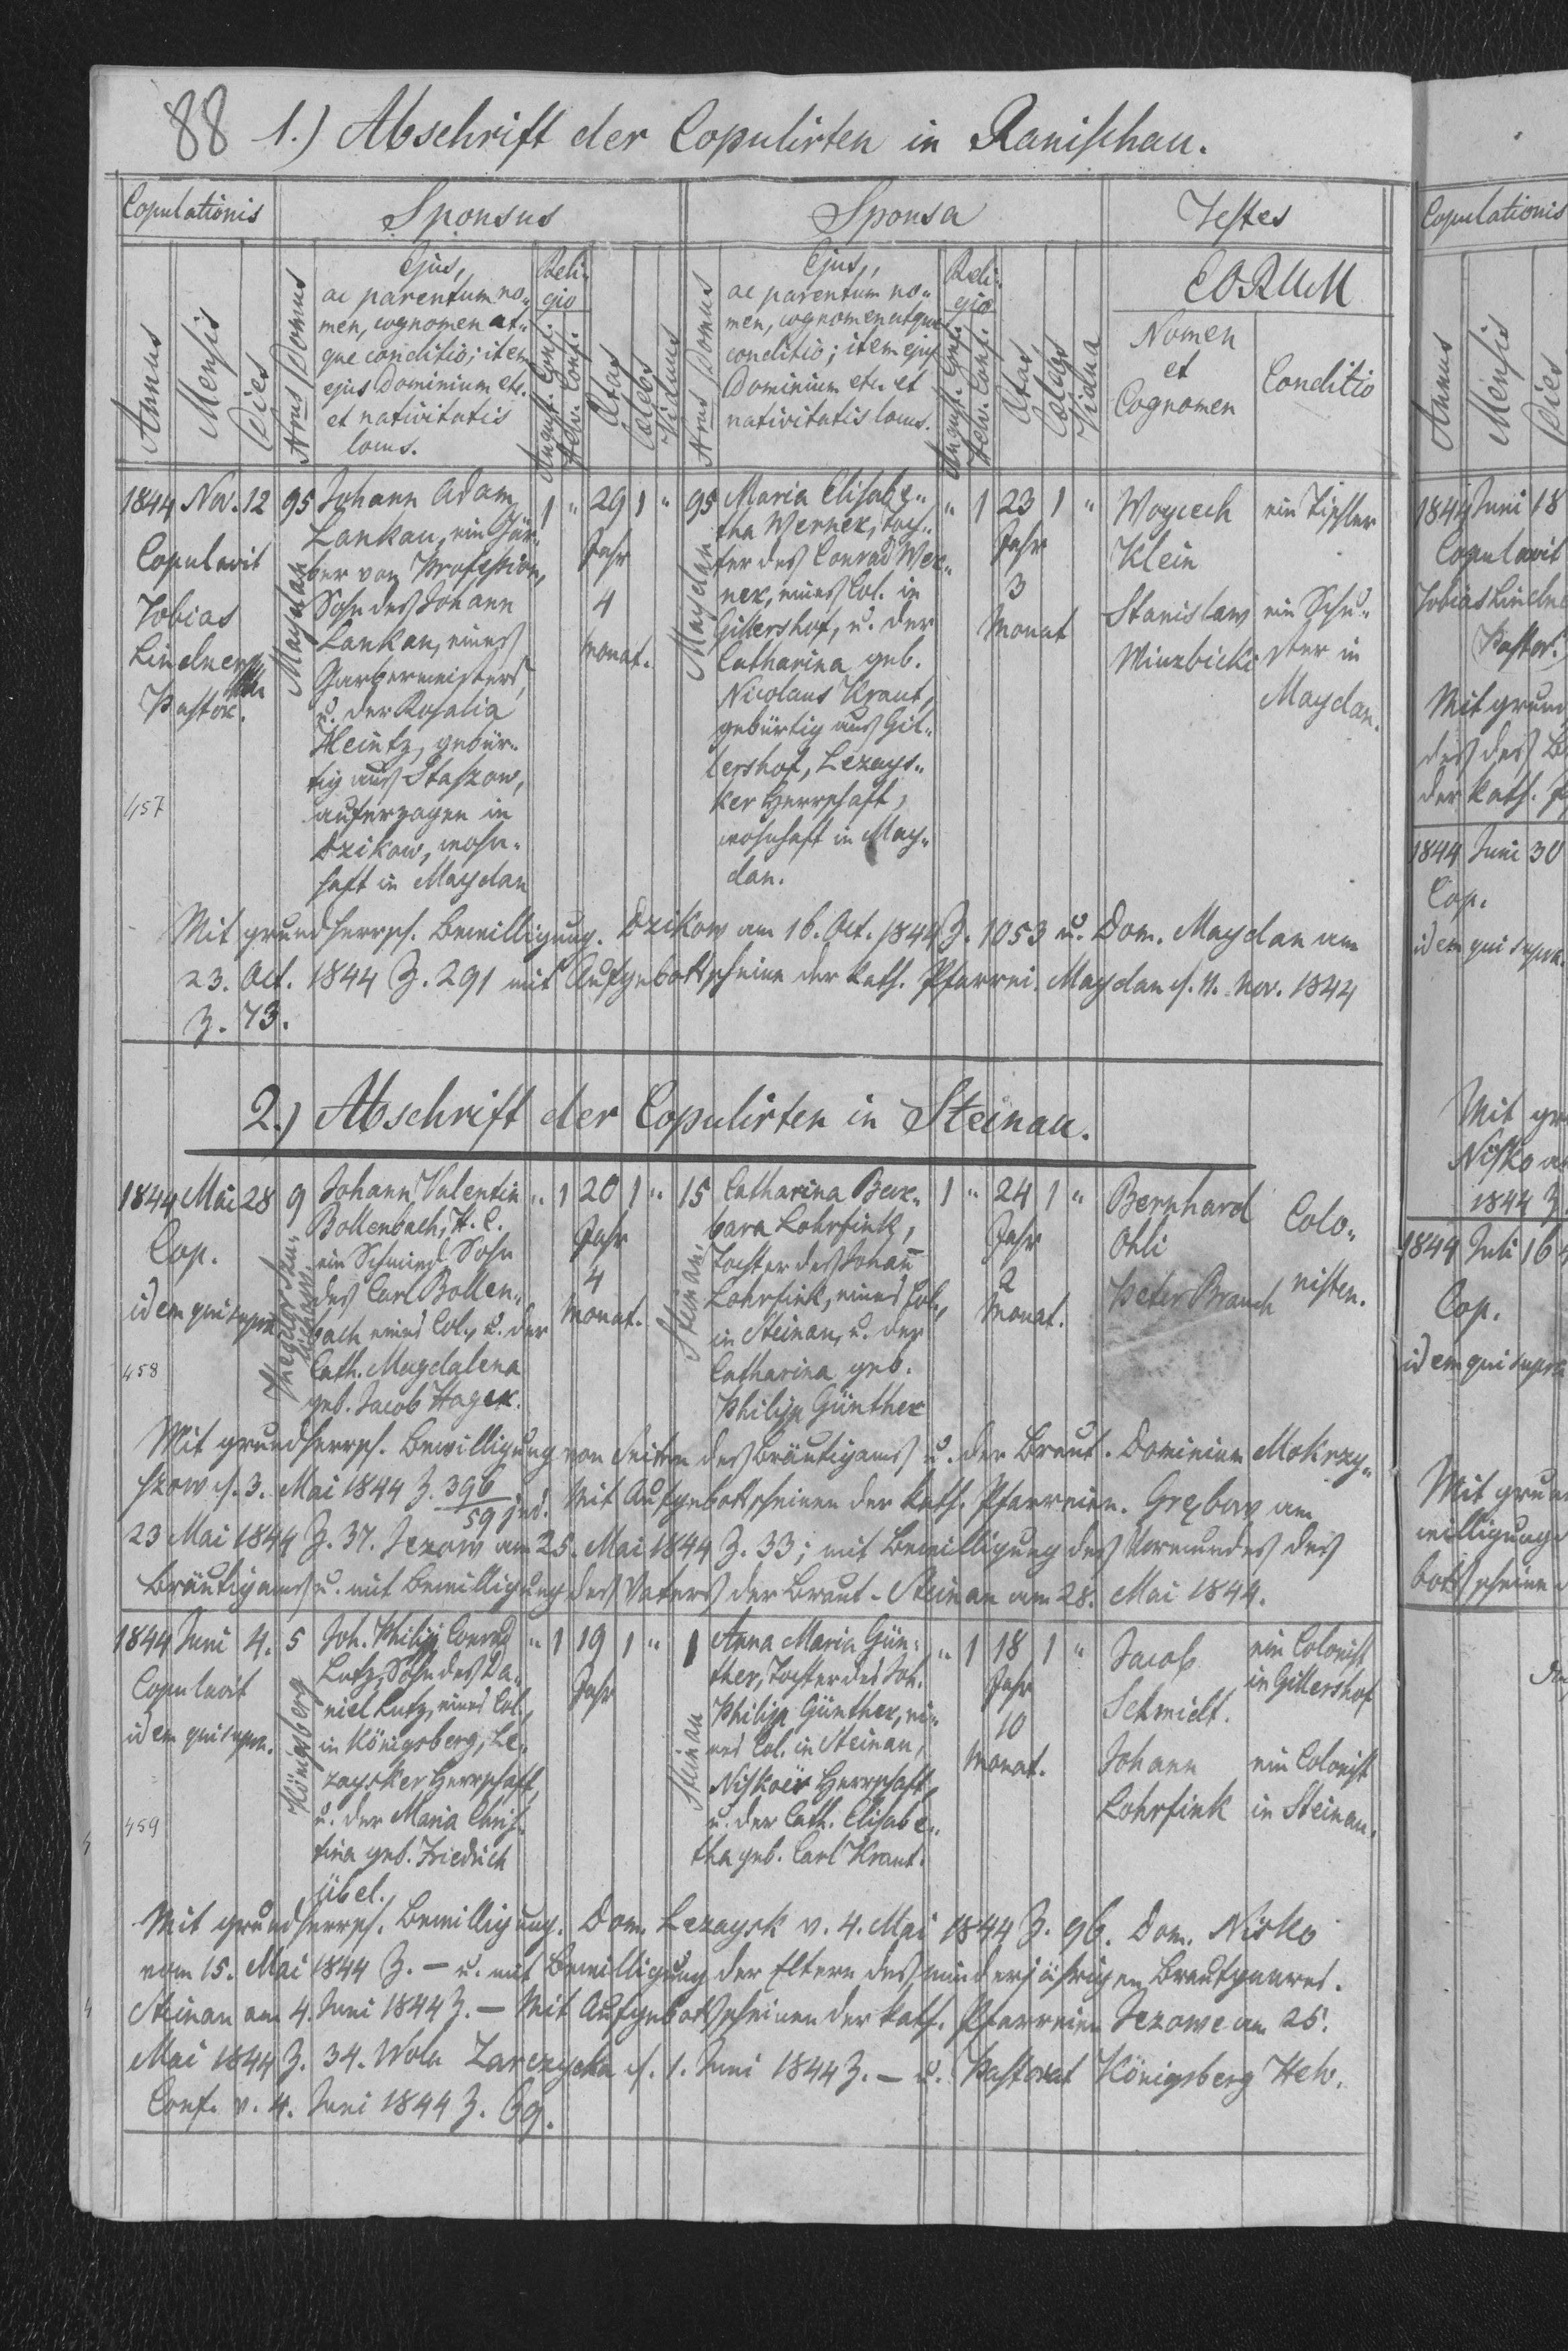 88 1.) Abschrift der Copulirten in Ranischau.
Copulationis
Sponsus
Sponsa
Testes
Annus
Mensis
Dies
Nrus Domus
Ejus,
ac parentum no-
men, cognomen at-
que conditio; item
ejus Dominium etc.
et nativitatis
locus.
Reli-
gio
August. Conf.
Helv. Conf.
Aetas
Caelebs
Viduus
Nrus Domus
Ejus,
ac parentum no-
men, cognomen atque
conditio; item ejus
Dominium etc. et
nativitatis locus.
Reli-
gio
August. Conf.
Helv. Conf.
Aetas
Caelebs
Vidua
EORUM
Nomen
et
Cognomen
Conditio
1844 Nov. 12
Copulavit
Tobias
Lindner
Pastor.
457
95
Maydan
Johann Adam
Lankau, ein Gär-
ber von Profession,
Sohn des Johann
Lankau, eines
Garbermeisters,
u. der Rosalia
Heintz, gebür-
tig aus Staszow,
auferzogen in
Dzikow, wohn-
haft in Maydan
1 " 29 1 "
Jahr
4
Monat.
95
Maydan
Maria Elisabe-
tha Werner, Toch-
ter des Conrad Wer-
ner, eines Col. in
Gillershof, u. der
Catharina geb.
Nicolaus Kraut,
gebürtig aus Gil-
lershof, Lezays-
ker Herrschaft,
wohnhaft in May-
dan.
" 1 23 1 "
Jahr
3
Monat
Woyciech
Klein
Stanislaw
Wierzbicki
ein Tischler
ein Schu-
ster in
Maydan.
Mit grundherrsch. Bewilligung. Dzikow am 16. Oct. 1844 Z. 1053 u. Dom. Maydan am
23. Oct. 1844 Z. 291 mit Aufgebottscheine der kath. Pfarrei. Maydan d. 11. Nov. 1844
Z. 73.
2.) Abschrift der Copulirten in Steinau.
1844 Mai 28
Cop.
idem qui supra
458
9
Johann Valentin
Bollenbach, H. C.
ein Schmied, Sohn
des Carl Bollen-
bach eines Col., u. der
Cath. Magdalena
geb. Jacob Hager.
" 1 20 1 "
Jahr
4
Monat.
15
Steinau
Catharina Bar-
bara Lohrfink,
Tochter des Johann
Lohrfink, eines Col.,
in Steinau, u. der
Catharina geb.
Philipp Günther
1 " 24 1 "
Jahr
2
Monat.
Bernhard
Ohli
Peter Brauch
Colo-
nisten.
Mit grundherrsch. Bewilligung von Seiten des Bräutigams u. der Braut. Dominium Mokrzy-
szow d. 3. Mai 1844 Z. 396/59 jud. Mit Aufgebottscheinen der kath. Pfarreien. Grębow am
23 Mai 1844 Z. 37. Jezow am 25. Mai 1844 Z. 33; mit Bewilligung des Vormundes des
Bräutigams u. mit Bewilligung des Vaters der Braut - Steinau am 28. Mai 1844.
1844 Juni 4.
Copulavit
idem qui supra.
459
5
Königsberg
Joh. Philipp Conrad
Lutz, Sohn des Da-
niel Lutz, eines Col.,
in Königsberg, Le-
zaysker Herrschaft,
u. der Maria Chris-
tina geb. Friedrich
Übel.
" 1 19 1 "
Jahr
1
Steinau
Anna Maria Gün-
ther, Tochter des Joh.
Philipp Günther, ei-
nes Col. in Steinau,
Niskoer Herrschaft,
u. der Cath. Elisabe-
tha geb. Carl Kraut.
" 1 18 1 "
Jahr
10
Monat.
Jacob
Schmidt.
Johann
Lohrfink
ein Colonist
in Gillershof
ein Colonist
in Steinau.
Mit grundherrsch. Bewilligung. Dom. Lezaysk v. 4. Mai 1844 Z. 96. Dom. Nisko
vom 15. Mai 1844 Z. — u. mit Bewilligung der Eltern des minderjährigen Brautpaares.
Steinau am 4. Juni 1844 Z. — Mit Aufgebottscheinen der kath. Pfarreien Jezowe am 25.
Mai 1844 Z. 34. Wola Zarczycka d. 1. Juni 1844 Z. — u. Pastorat Königsberg Helv.
Conf. v. 4. Juni 1844 Z. 69.
Copulationis
Annus
Mensis
Dies
1844 Juni 18
Copulavit
Tobias Lindne
Pastor.
Mit grund
der kath.
1844 Juni 30
Cop.
idem qui supra.
Mit gr
Nisko a
1844 Z.
1844 Juli 16
Cop.
idem qui supra
Mit grun
willigung
bottscheine